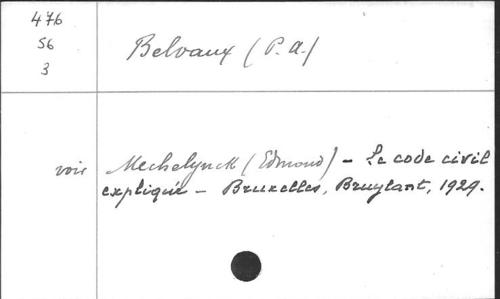 476
56
3
Belvaux (P. A.)
voir Mechelynck (Edmond) - Le code civil
expliqué - Bruxelles, Bruylant, 1929.